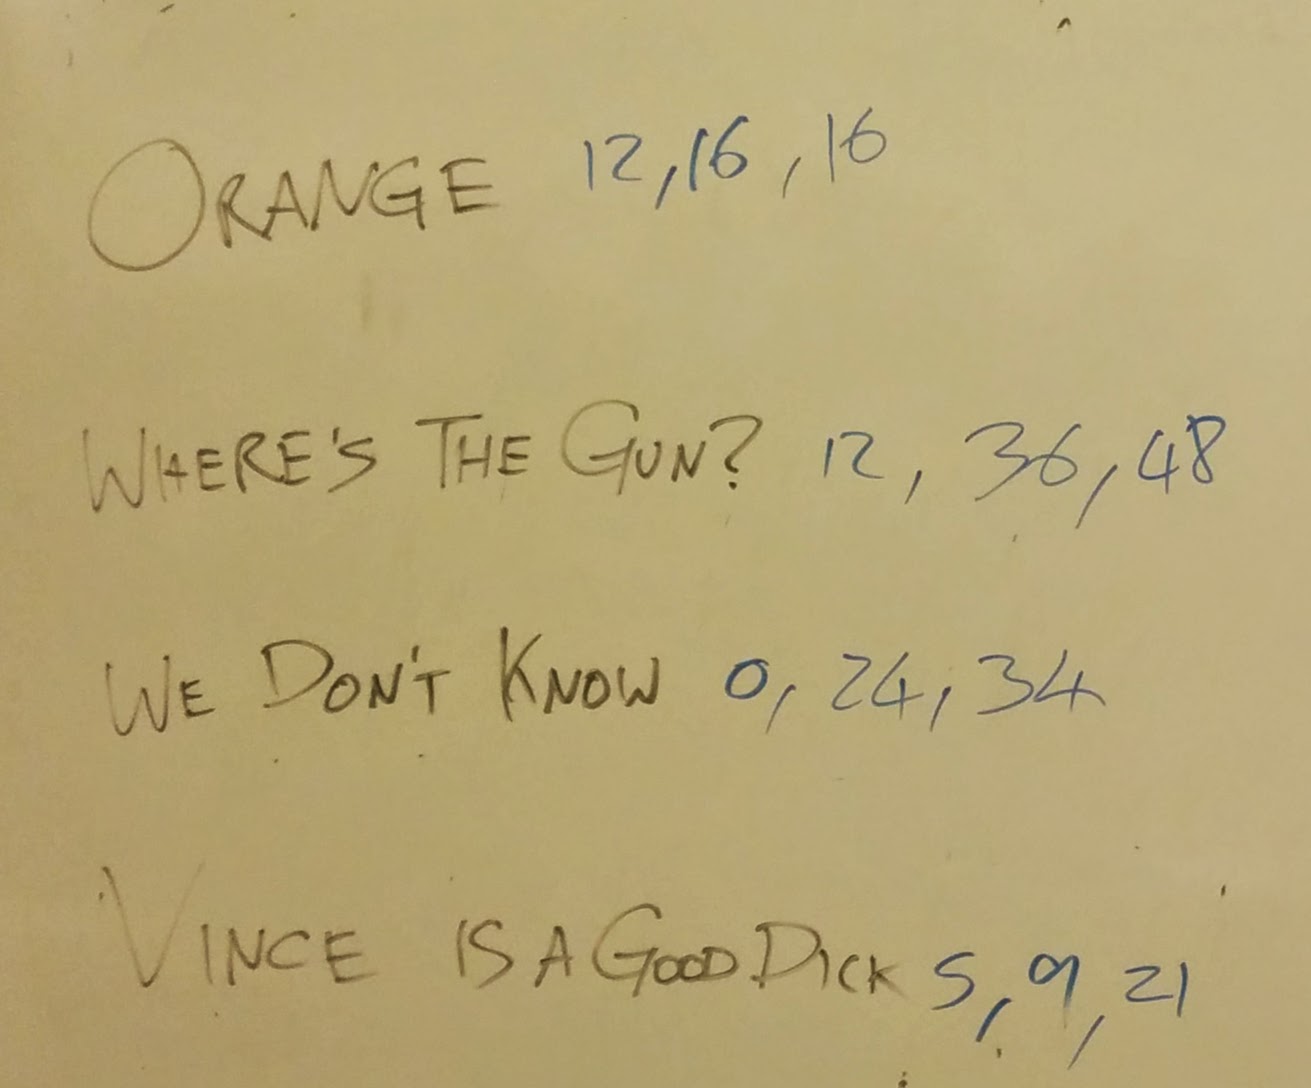 ORANGE 12,16,16
WHERE'S THE GUN? 12, 36,48
WE DON'T KNOW 0, 24, 34
VINCE IS A GOOD DICK 5, 9, 21